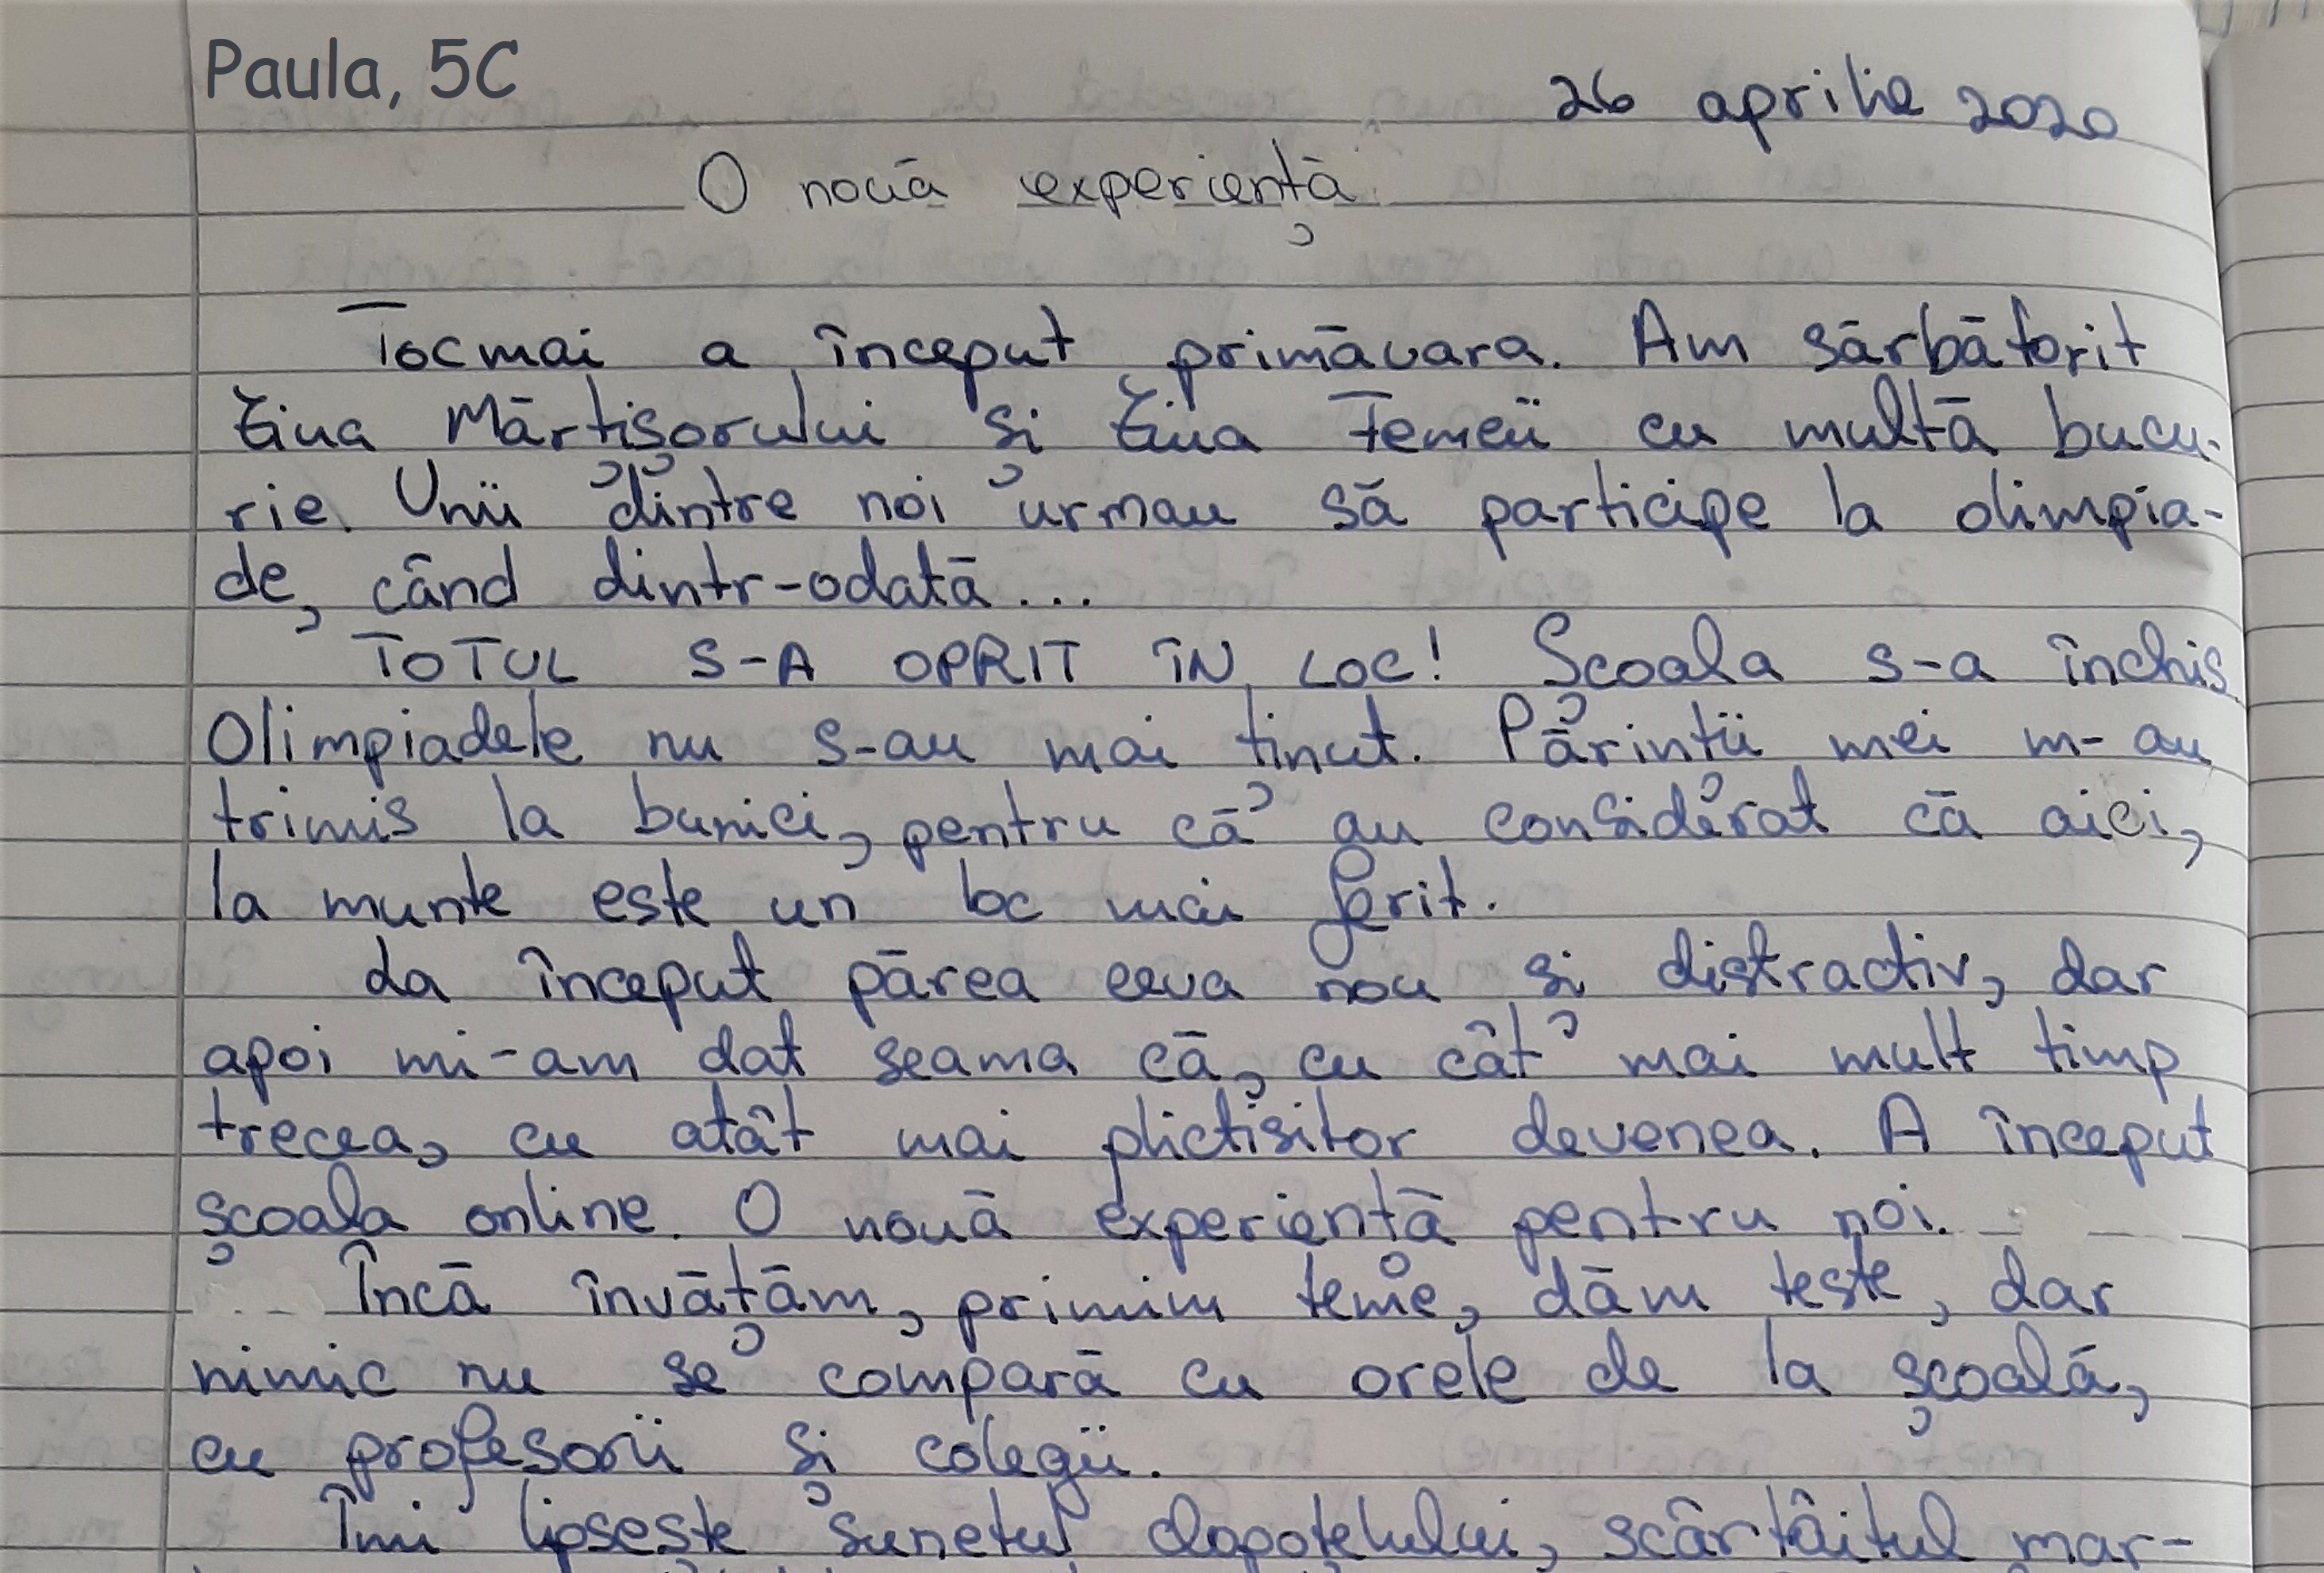 Paula, 5C
26 aprilie 2020
O nouă experiență
Tocmai a început primăvara. Am sărbătorit
ziua Mărțișorului și ziua Femeii cu multă bucu-
rie. Unii dintre noi urmau să participe la olimpia-
de, când dintr-odată...
TOTUL S-A OPRIT ÎN LOC! Școala s-a închis
Olimpiadele nu s-au mai ținut. Părinții mei m-au
trimis la bunici, pentru că au considerat că aici,
la munte este un loc mai ferit.
La început părea ceva nou și distractiv, dar
apoi mi-am dat seama că, cu cât mai mult timp
trecea, cu atât mai plictisitor devenea. A început
școala online. O nouă experiență pentru noi.
Încă învățăm, primim teme, dăm teste, dar
nimic nu se compară cu orele de la școală,
cu profesorii și colegii.
Îmi lipsește sunetul clopoțelului, scârțâitul mar-